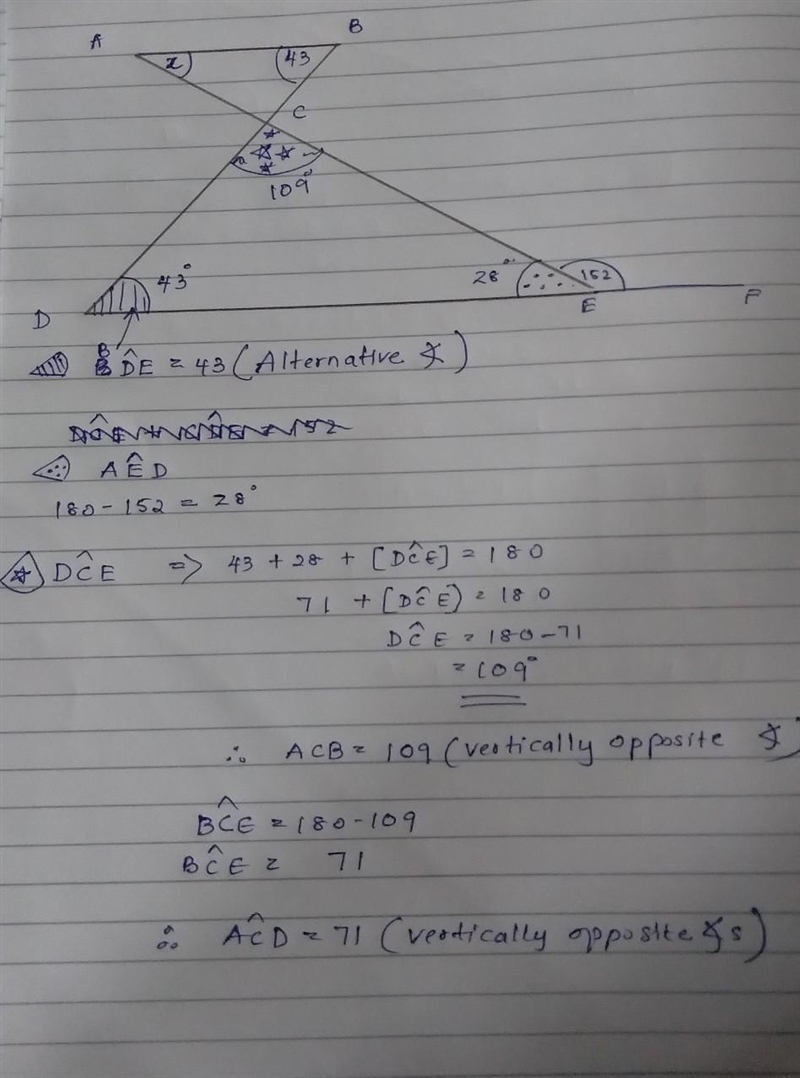 A B
x 43
C
109°
43° 28° 152
D E F
BD̂E = 43 (Alternative ∡)
AÊD
180 - 152 = 28°
DĈE => 43 + 28 + [DĈE] = 180
71 + [DĈE] = 180
DĈE = 180 - 71
= 109°
∴ ACB = 109 (vertically opposite ∡)
BĈE = 180 - 109
BĈE = 71
∴ AĈD = 71 (vertically opposite ∡s)